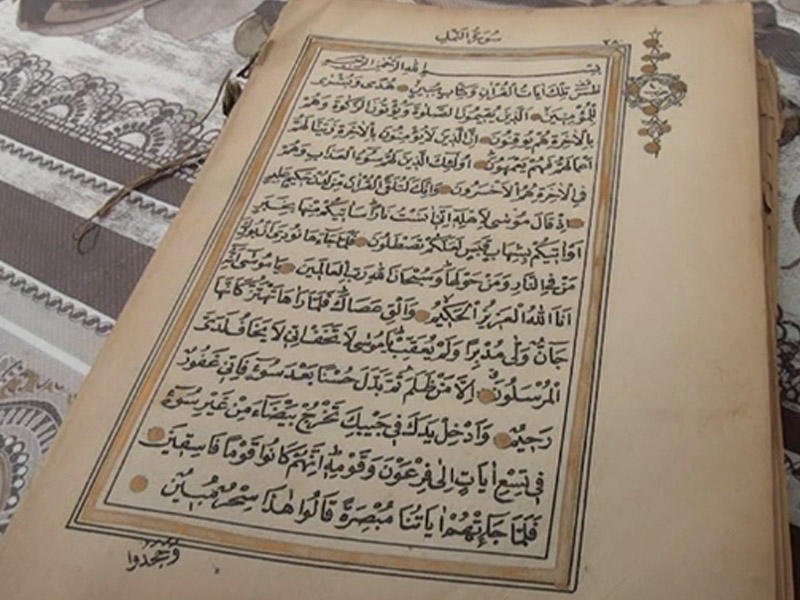 سورة النمل
٢٨٠
بسم الله الرحمن الرحيم
طس تلك ايات القران وكتاب مبين هدى وبشرى
للمؤمنين الذين يقيمون الصلوة ويؤتون الزكوة وهم
بالاخرة هم يوقنون ان الذين لا يؤمنون بالاخرة زينا لهم
اعمالهم فهم يعمهون اولئك الذين لهم سوء العذاب وهم
في الاخرة هم الاخسرون وانك لتلقى القران من لدن حكيم عليم
اذ قال موسى لاهله اني انست نارا ساتيكم منها بخبر
او اتيكم بشهاب قبس لعلكم تصطلون فلما جاءها نودي ان بورك
من في النار ومن حولها وسبحان الله رب العالمين يا موسى انه
انا الله العزيز الحكيم والق عصاك فلما راها تهتز كانها
جان ولى مدبرا ولم يعقب يا موسى لا تخف اني لا يخاف لدي
المرسلون الا من ظلم ثم بدل حسنا بعد سوء فاني غفور
رحيم وادخل يدك في جيبك تخرج بيضاء من غير سوء
في تسع ايات الى فرعون وقومه انهم كانوا قوما فاسقين
فلما جاءتهم اياتنا مبصرة قالوا هذا سحر مبين
وجحدوا